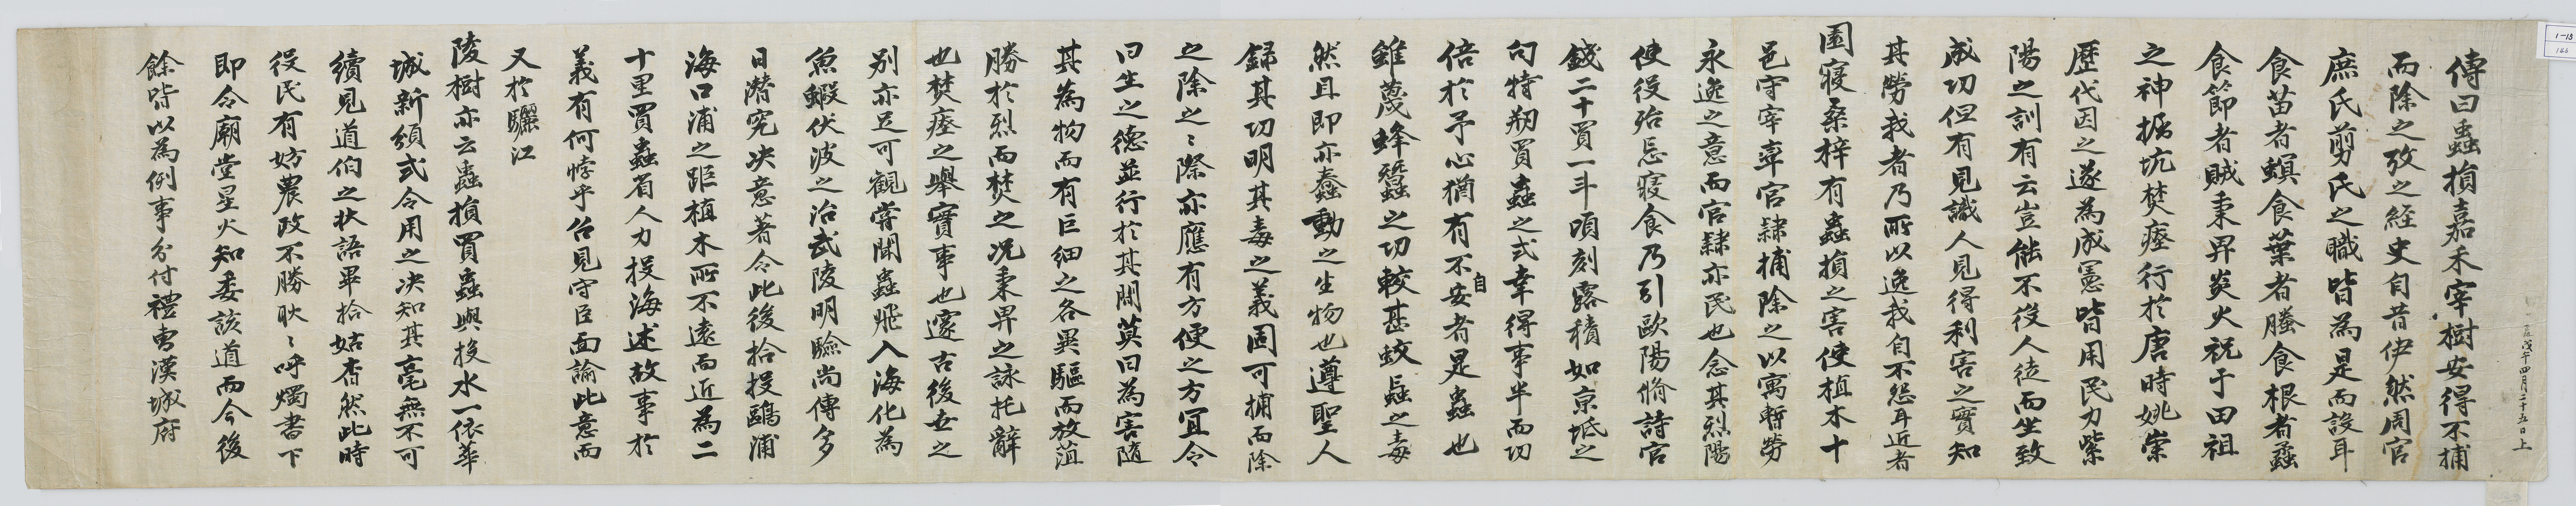 戊午四月二十五日上
傳曰蟲損嘉禾宰樹安得不捕
而除之攷之經史自昔伊然周官
庶氏剪氏之職皆為是而設耳
食苗者螟食葉者螣食根者蟊
食節者賊秉畀炎火祝于田祖
之神掘坑焚瘞行於唐時姚崇
歷代因之遂為成憲皆用民力紫
陽之訓有云豈能不役人徒而坐致
成功但有見識人見得利害之實知
其勞我者乃所以逸我自不怨耳近者
園寢桑梓有蟲損之害使植木十
邑守宰率官隸捕除之以寓暫勞
永逸之意而官隸亦民也念其烈陽
使役殆忘寢食乃引歐陽脩詩官
錢二十買一斗頃刻露積如京坻之
句特刱買蟲之式幸得事半而功
倍於予心猶有不自安者是蟲也
雖蔑蜂蠶之功較甚蛟蝱之毒
然且即亦蠢動之生物也遵聖人
錄其功明其毒之義固可捕而除
之除之之際亦應有方便之方冝令
曰生之德並行於其間莫曰為害隨
其為物而有巨細之各異驅而放菹
勝於烈而焚之况秉畀之詠托辭
也焚瘞之舉實事也邃古後世之
別亦足可觀嘗聞蟲飛入海化為
魚蝦伏波之治武陵明驗尚傳多
日潛究决意著令此後拾投鷗浦
海口浦之距植木所不遠而近為二
十里買蟲省人力投海述故事於
義有何悖乎召見守臣面諭此意而
又於驪江
陵樹亦云蟲損買蟲與投水一依華
城新頒式令用之决知其毫無不可
續見道伯之狀語畢拾姑杳然此時
役民有妨農政不勝耿耿呼燭書下
即令廟堂星火知委該道而今後
餘皆以為例事分付禮曹漢城府
1-13